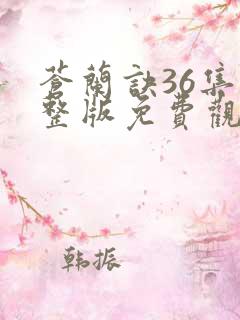 蒼蘭訣36集
整版免費觀
韩振